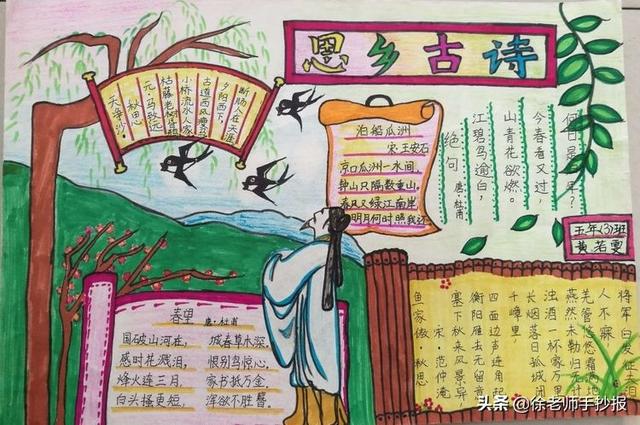 恩乡古诗
天净沙·
秋思
元·马致远
枯藤老树昏鸦
小桥流水人家
古道西风瘦马
夕阳西下,
断肠人在天涯
泊船瓜洲
宋·王安石
京口瓜洲一水间,
钟山只隔数重山。
春风又绿江南岸
明月何时照我还
绝句
唐·杜甫
江碧鸟逾白,
山青花欲燃。
今春看又过,
何日是归年?
五年(3)班
黄若雯
春望
唐·杜甫
国破山河在, 城春草木深。
感时花溅泪, 恨别鸟惊心。
烽火连三月, 家书抵万金。
白头搔更短, 浑欲不胜簪。
鱼家傲 秋思
宋·范仲淹
塞下秋来风景异
衡阳雁去无留意
四面边声连角起
千嶂里,
长烟落日孤城闭
浊酒一杯家万里
燕然未勒归无计
羌管悠悠霜满地
人不寐,
将军白发征夫泪
头条 @徐老师手抄报